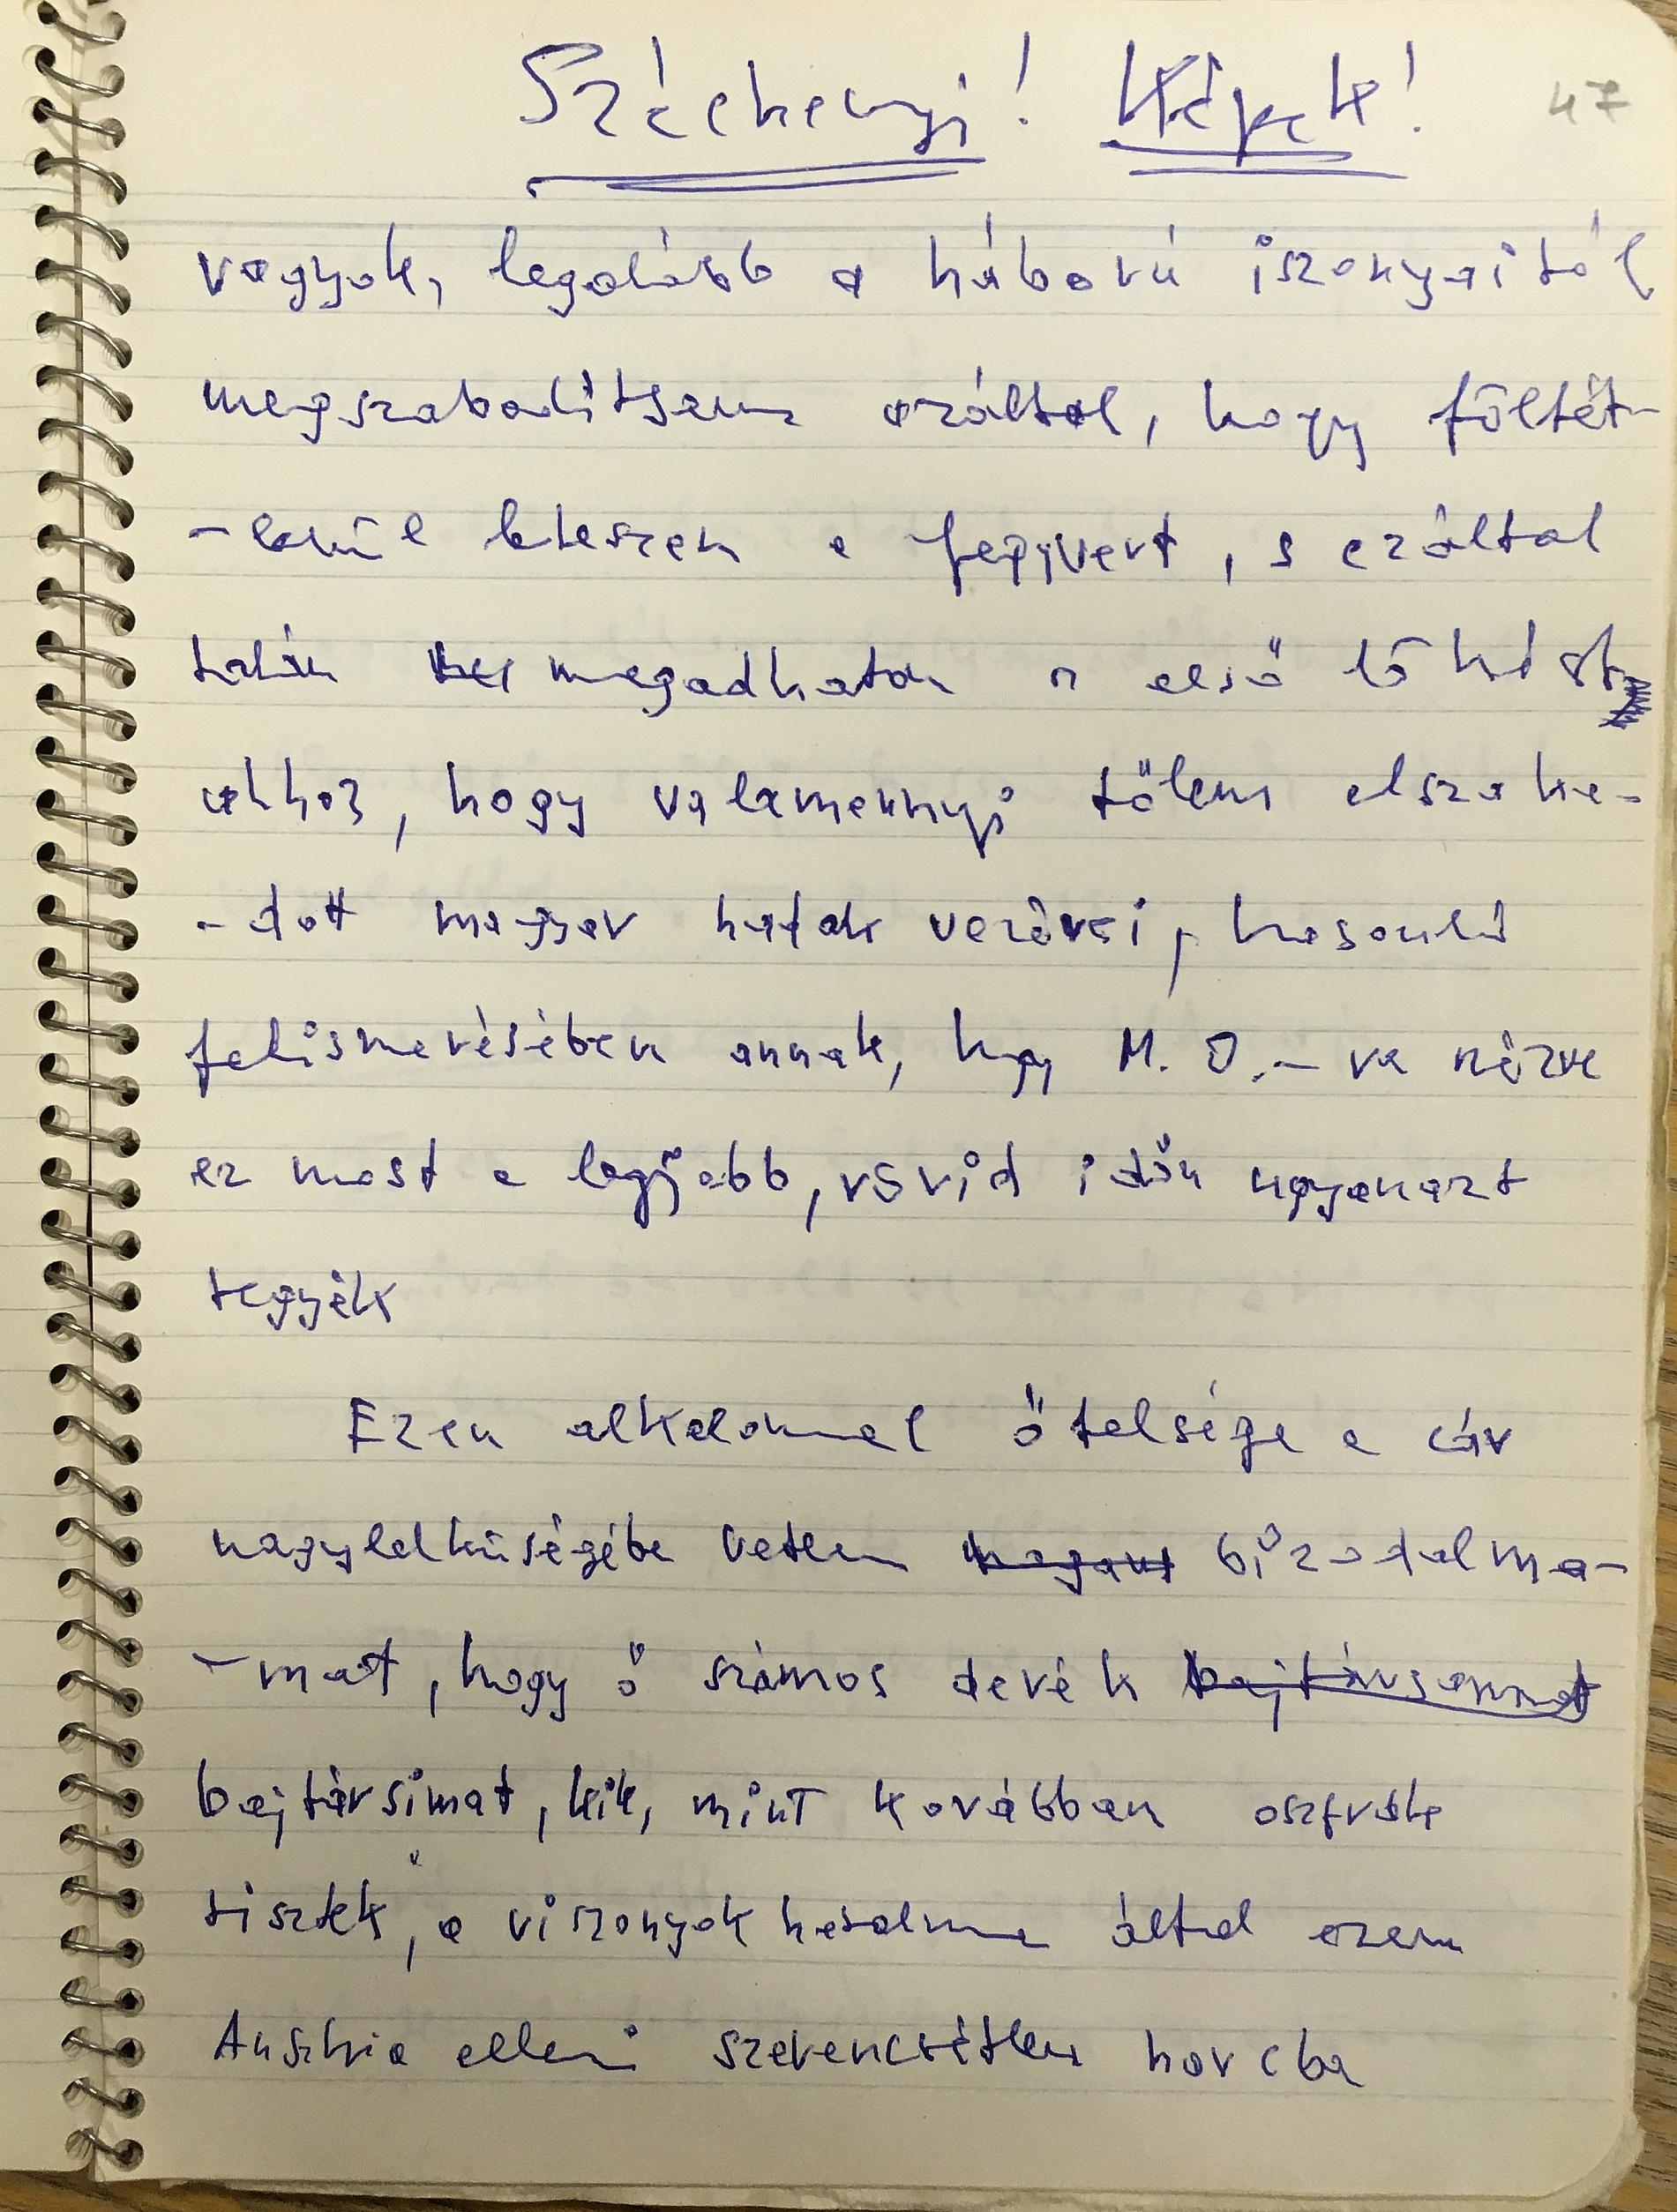 Széchenyi! Képek! 47
vagyok, legalább a háború iszonyaitól
megszabadítsam azáltal, hogy föltét-
-lenül leteszem a fegyvert, s ezáltal
talán megadhatom a első lökést
ahhoz, hogy valamennyi tőlem elszaka-
-dott magyar hadak vezérei, hasonló
felismerésében annak, hogy M. O.-ra nézve
ez most a legjobb, rövid időn ugyanazt
tegyék
Ezen alkalommal őfelsége a cár
nagylelkűségébe vetem magamat bizodalma-
-mat, hogy ő számos derék bajtársamat
bajtársimat, kik, mint korábban osztrák
tisztek, a viszonyok hatalma által ezen
Austria elleni szerencsétlen harcba